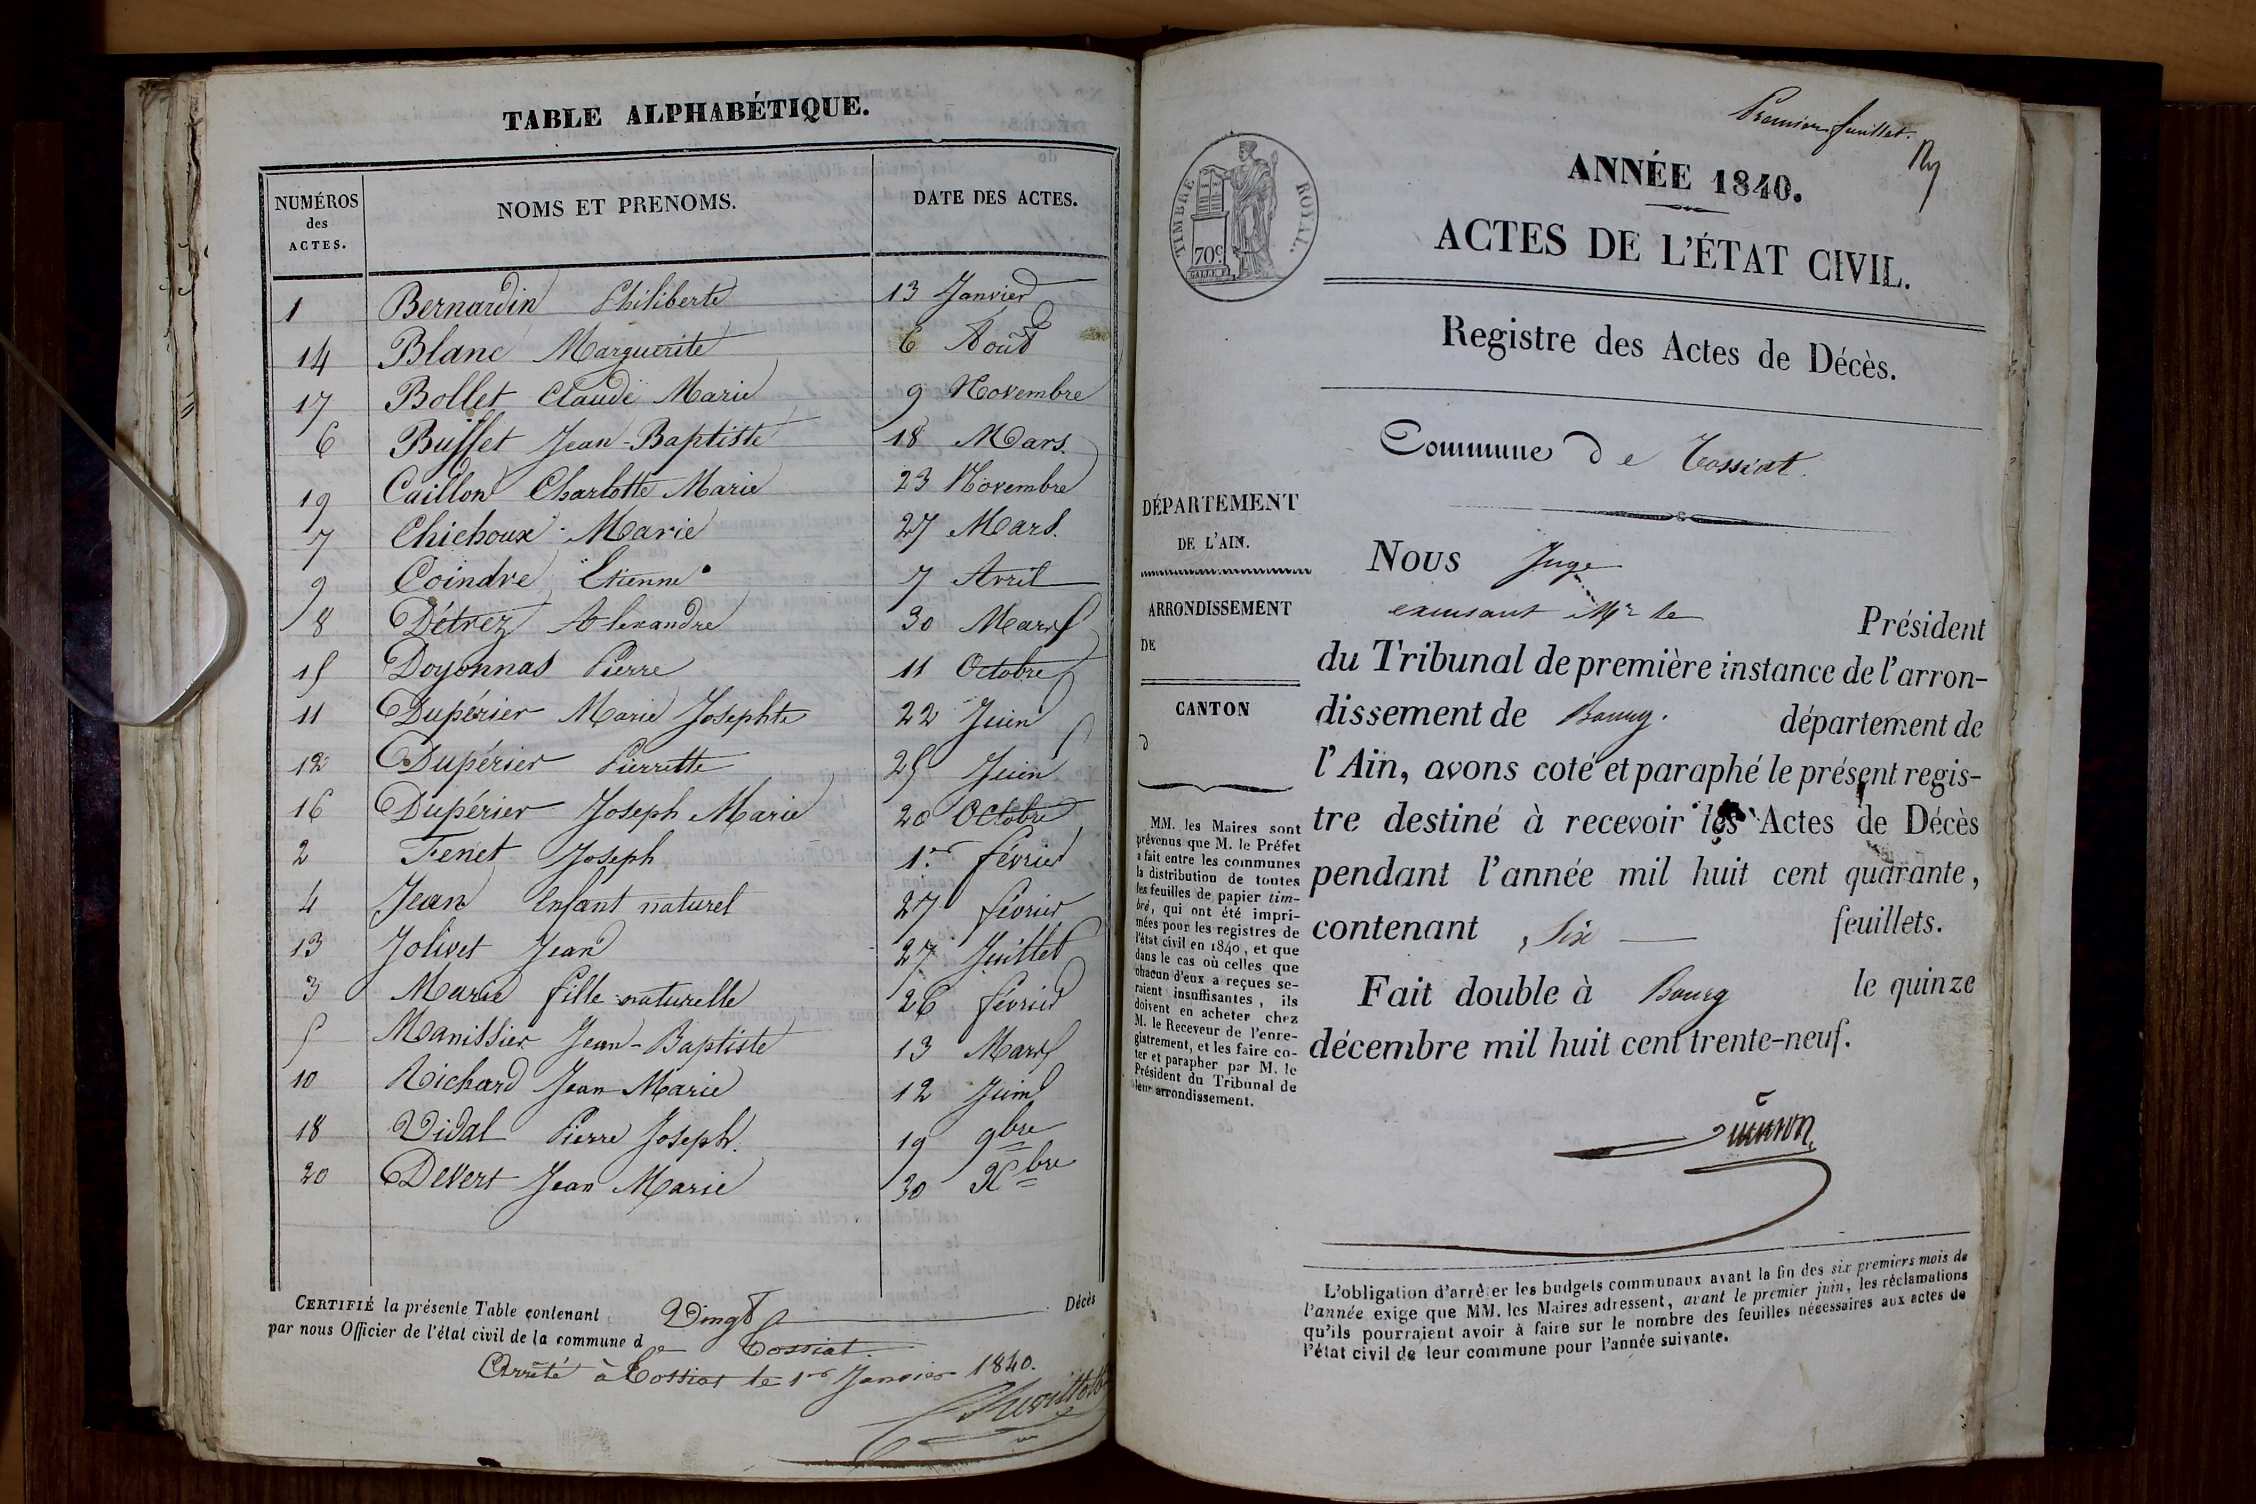 TABLE ALPHABÉTIQUE.
NUMÉROS des ACTES. NOMS ET PRENOMS. DATE DES ACTES.
1 Bernardin Philiberte 13 Janvier
14 Blanc Marguerite 6 Août
17 Bollet Claude Marie 9 Novembre
6 Buffet Jean-Baptiste 18 Mars.
19 Caillon Charlotte Marie 23 Novembre
7 Chichoux Marie 27 Mars.
9 Coindre Etienne 7 Avril
8 Détrez Alexandre 30 Mars
15 Doyonnas Pierre 11 Octobre
11 Dupérier Marie Josephte 22 Juin
12 Dupérier Pierrette 25 Juin
16 Dupérier Joseph Marie 20 Octobre
2 Fenet Joseph 1er février
4 Jean Enfant naturel 27 février
13 Jolivet Jean 27 Juillet
3 Marie fille naturelle 26 février
5 Manissier Jean-Baptiste 13 Mars
10 Richard Jean Marie 12 Juin
18 Vidal Pierre Joseph. 19 9bre
20 Devert Jean Marie 30 Xbre
CERTIFIÉ la présente Table contenant Vingt Décès
par nous Officier de l'état civil de la commune de Tossiat.
Arrêté à Tossiat le 1er Janvier 1840.
Premier feuillet.
TIMBRE ROYAL.
70c
ANNÉE 1840.
ACTES DE L'ÉTAT CIVIL.
Registre des Actes de Décès.
Commune de Tossiat.
DÉPARTEMENT
DE L'AIN.
ARRONDISSEMENT
DE
CANTON
d
MM. les Maires sont
prévenus que M. le Préfet
a fait entre les communes
la distribution de toutes
les feuilles de papier tim-
bré, qui ont été impri-
mées pour les registres de
l'état civil en 1840, et que
dans le cas où celles que
chacun d'eux a reçues se-
raient insuffisantes, ils
doivent en acheter chez
M. le Receveur de l'enre-
gistrement, et les faire co-
ter et parapher par M. le
Président du Tribunal de
leur arrondissement.
Nous Juge
excusant Mr le Président
du Tribunal de première instance de l'arron-
dissement de Bourg. département de
l'Ain, avons coté et paraphé le présent regis-
tre destiné à recevoir les Actes de Décès
pendant l'année mil huit cent quarante,
contenant six feuillets.
Fait double à Bourg le quinze
décembre mil huit cent trente-neuf.
L'obligation d'arrêter les budgets communaux avant la fin des six premiers mois de
l'année exige que MM. les Maires adressent, avant le premier juin, les réclamations
qu'ils pourraient avoir à faire sur le nombre des feuilles nécessaires aux actes de
l'état civil de leur commune pour l'année suivante.